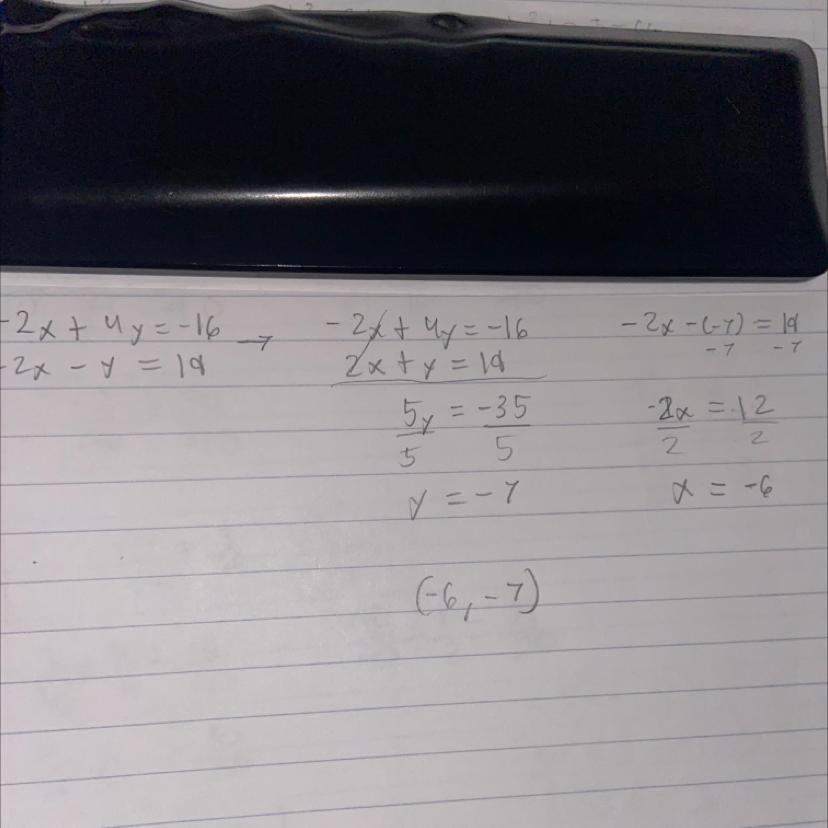 -2x + 4y = -16 → -2x + 4y = -16
-2x - y = 19
2x + y = 19
5y = -35
5 5
y = -7
-2x - (-7) = 19
-7 -7
-2x = 12
2 2
x = -6
(-6, -7)